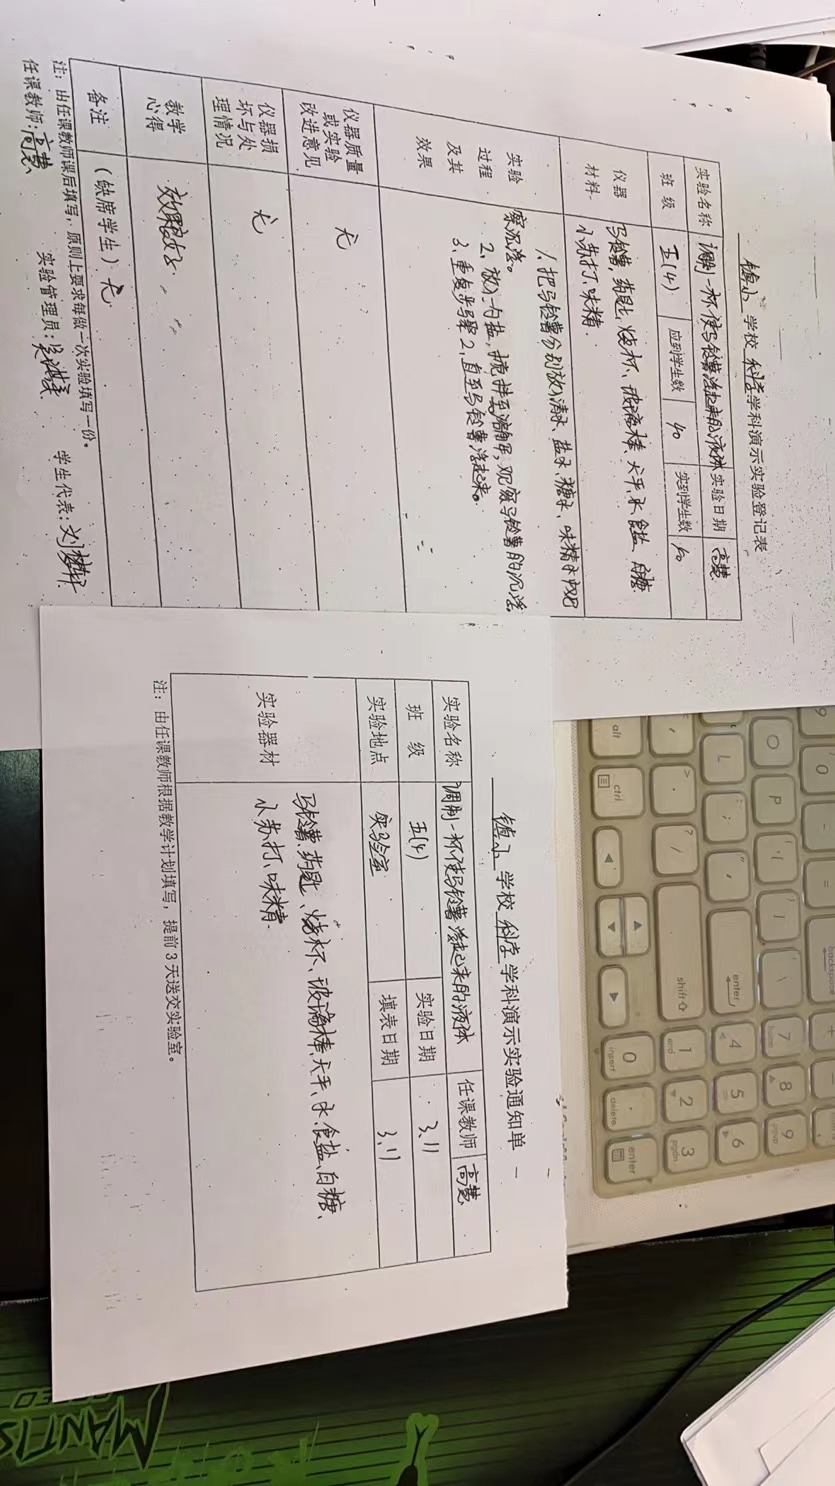 镇小 学校 科学 学科演示实验登记表
实验名称 调制一杯使马铃薯浮起来的液体 实验日期 高慧
班 级 五(4) 应到学生数 40 实到学生数 40
仪器 马铃薯、药匙、烧杯、玻璃棒、天平、水、食盐、白糖
材料 小苏打、味精
1、把马铃薯分别放入清水、盐水、糖水、味精水中观
实验 察沉浮。
过程 2、放入一勺盐，搅拌至溶解，观察马铃薯的沉浮
及其 3、重复步骤2，直至马铃薯浮起来。
效果
仪器质量
或实验 无
改进意见
仪器损
坏与处 无
理情况
教学
心得
备注 (缺席学生) 无
注：由任课教师课后填写，原则上要求每做一次实验填写一份。
任课教师：高慧 实验管理员： 学生代表：
镇小 学校 科学 学科演示实验通知单
实验名称 调制一杯使马铃薯浮起来的液体 任课教师 高慧
班 级 五(4) 实验日期 3.11
实验地点 实验室 填表日期 3.11
马铃薯、药匙、烧杯、玻璃棒、天平、水、食盐、白糖、
实验器材 小苏打、味精
注：由任课教师根据教学计划填写，提前3天送交实验室。
alt
ctrl
shift
enter
backspace
O
P
L
7
8
9
4
5
6
1
end
2
3
pgdn
0
insert
delete
enter
MANTIS